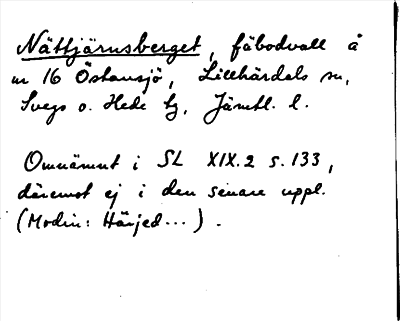 Nättjärnsberget, fäbodvall å
nr 16 Östansjö, Lillhärdals sn,
Svegs o. Hede tg, Jämtl. l.
Omnämnt i SL XIX.2 s. 133,
däremot ej i den senare uppl.
(Modin: Härjed...).